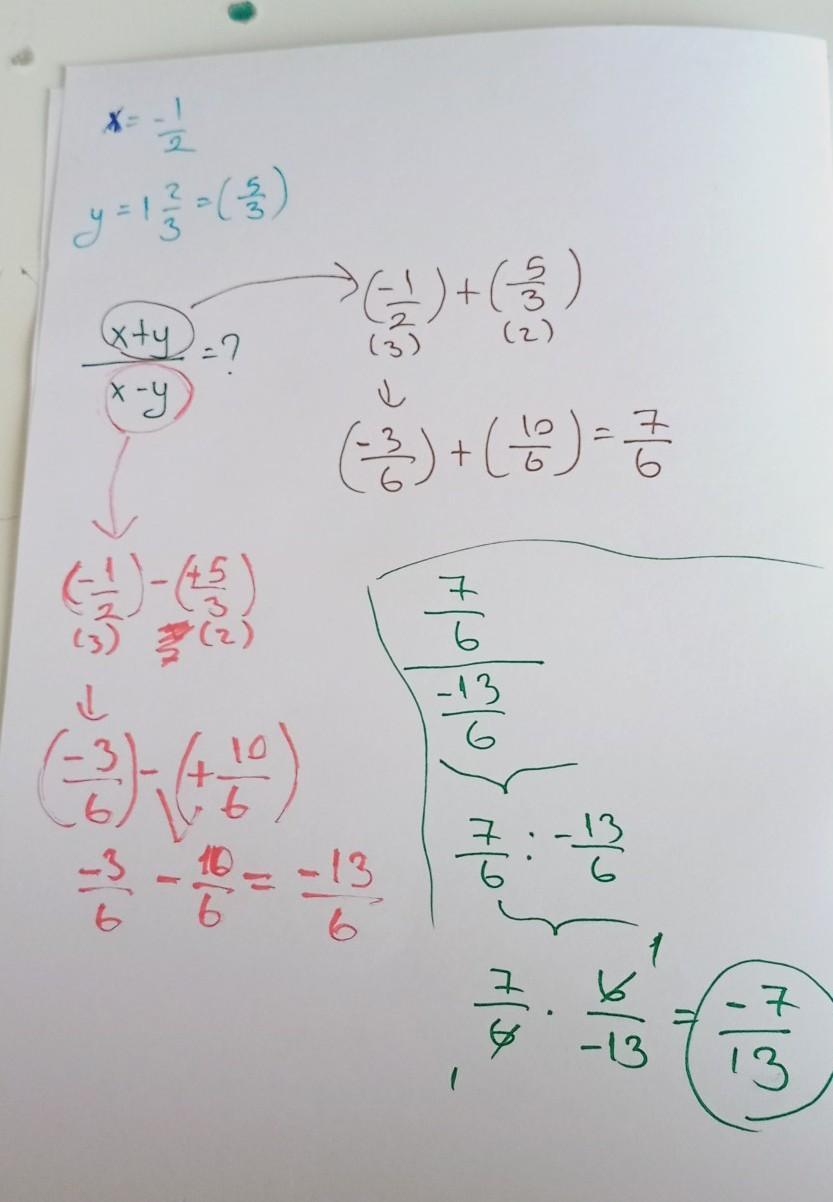 x = -1/2
y = 1 2/3 = (5/3)
x+y/x-y = ?
(-1/2) + (5/3)
(3) (2)
↓
(-3/6) + (10/6) = 7/6
(-1/2) - (+5/3)
(3) (2)
↓
(-3/6) - (+10/6)
-3/6 - 10/6 = -13/6
7/6
-13/6
7/6 : -13/6
1
7/6 · 6/-13 = -7/13
1